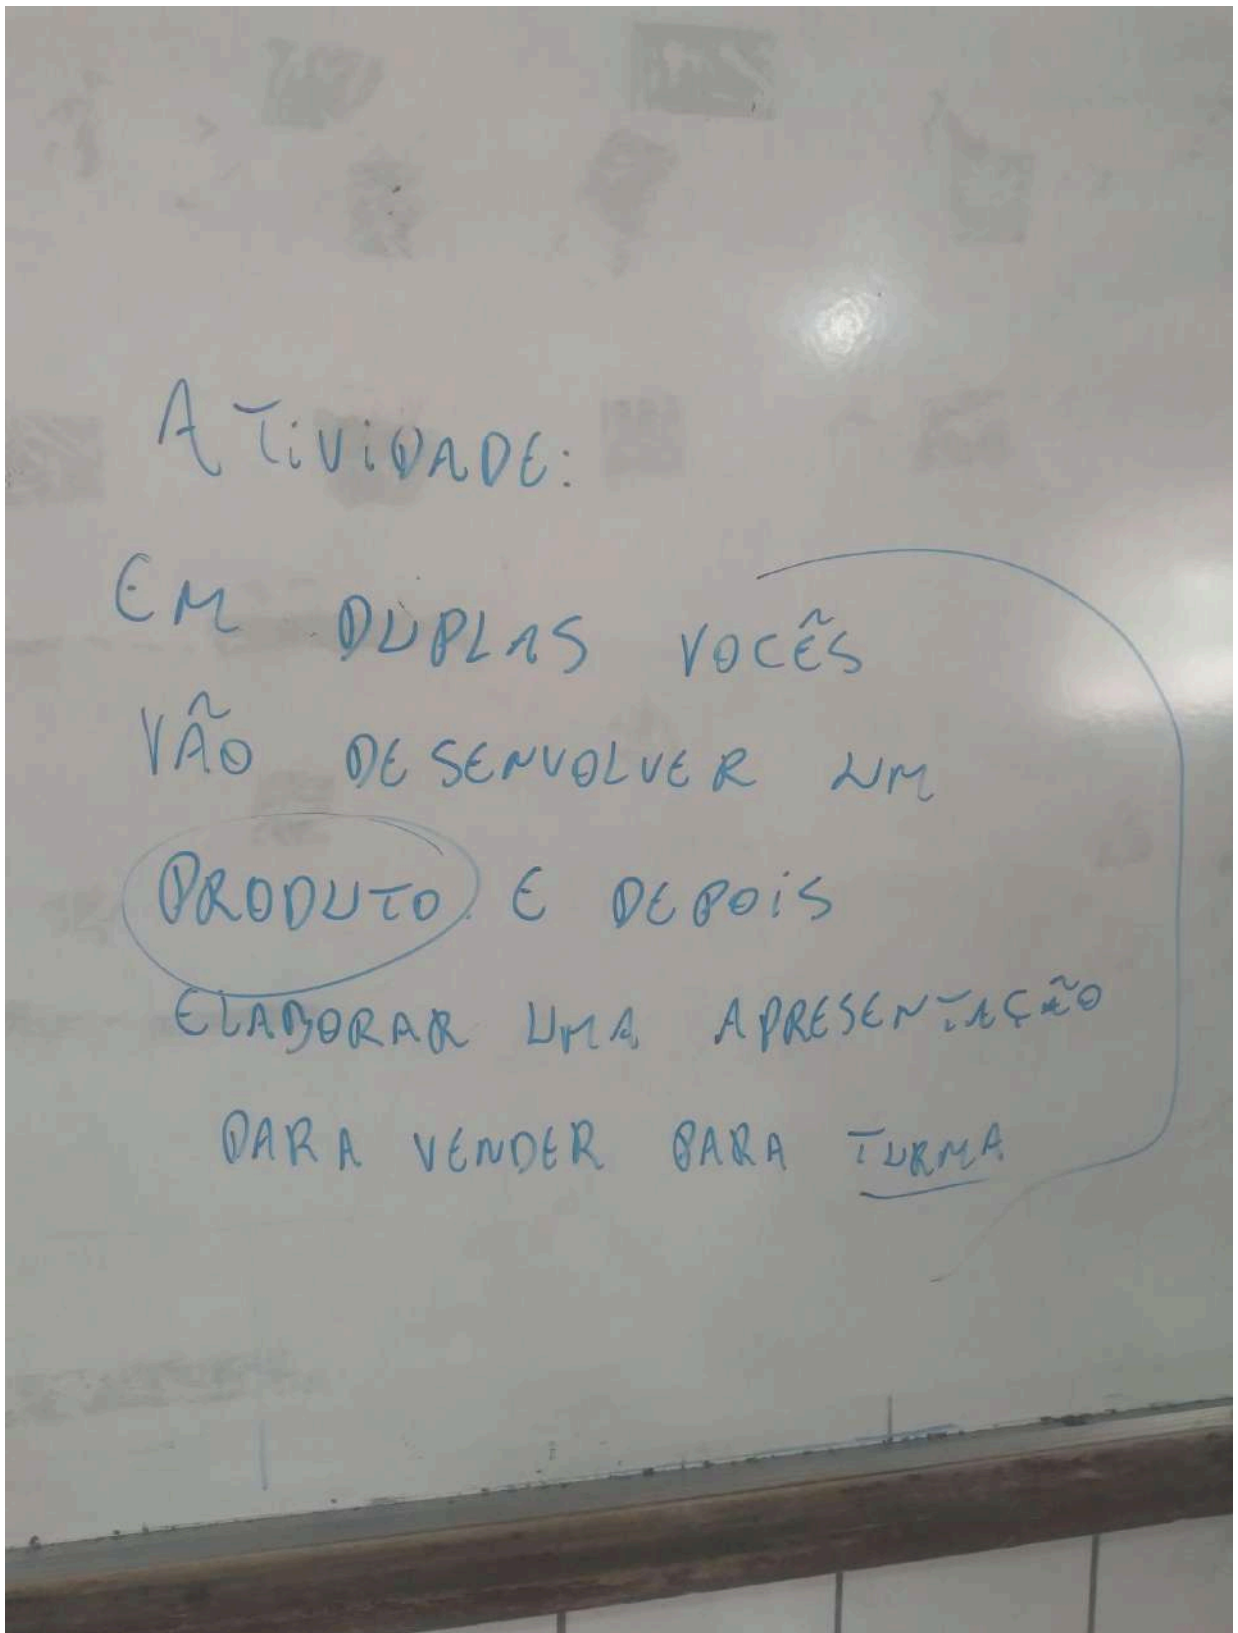 ATiViDADE:
EM DUPLAS VOCÊS
VÃO DESENVOLVER UM
PRODUTO E DEPOiS
ELABORAR UMA APRESENTAÇÃO
PARA VENDER PARA TURMA